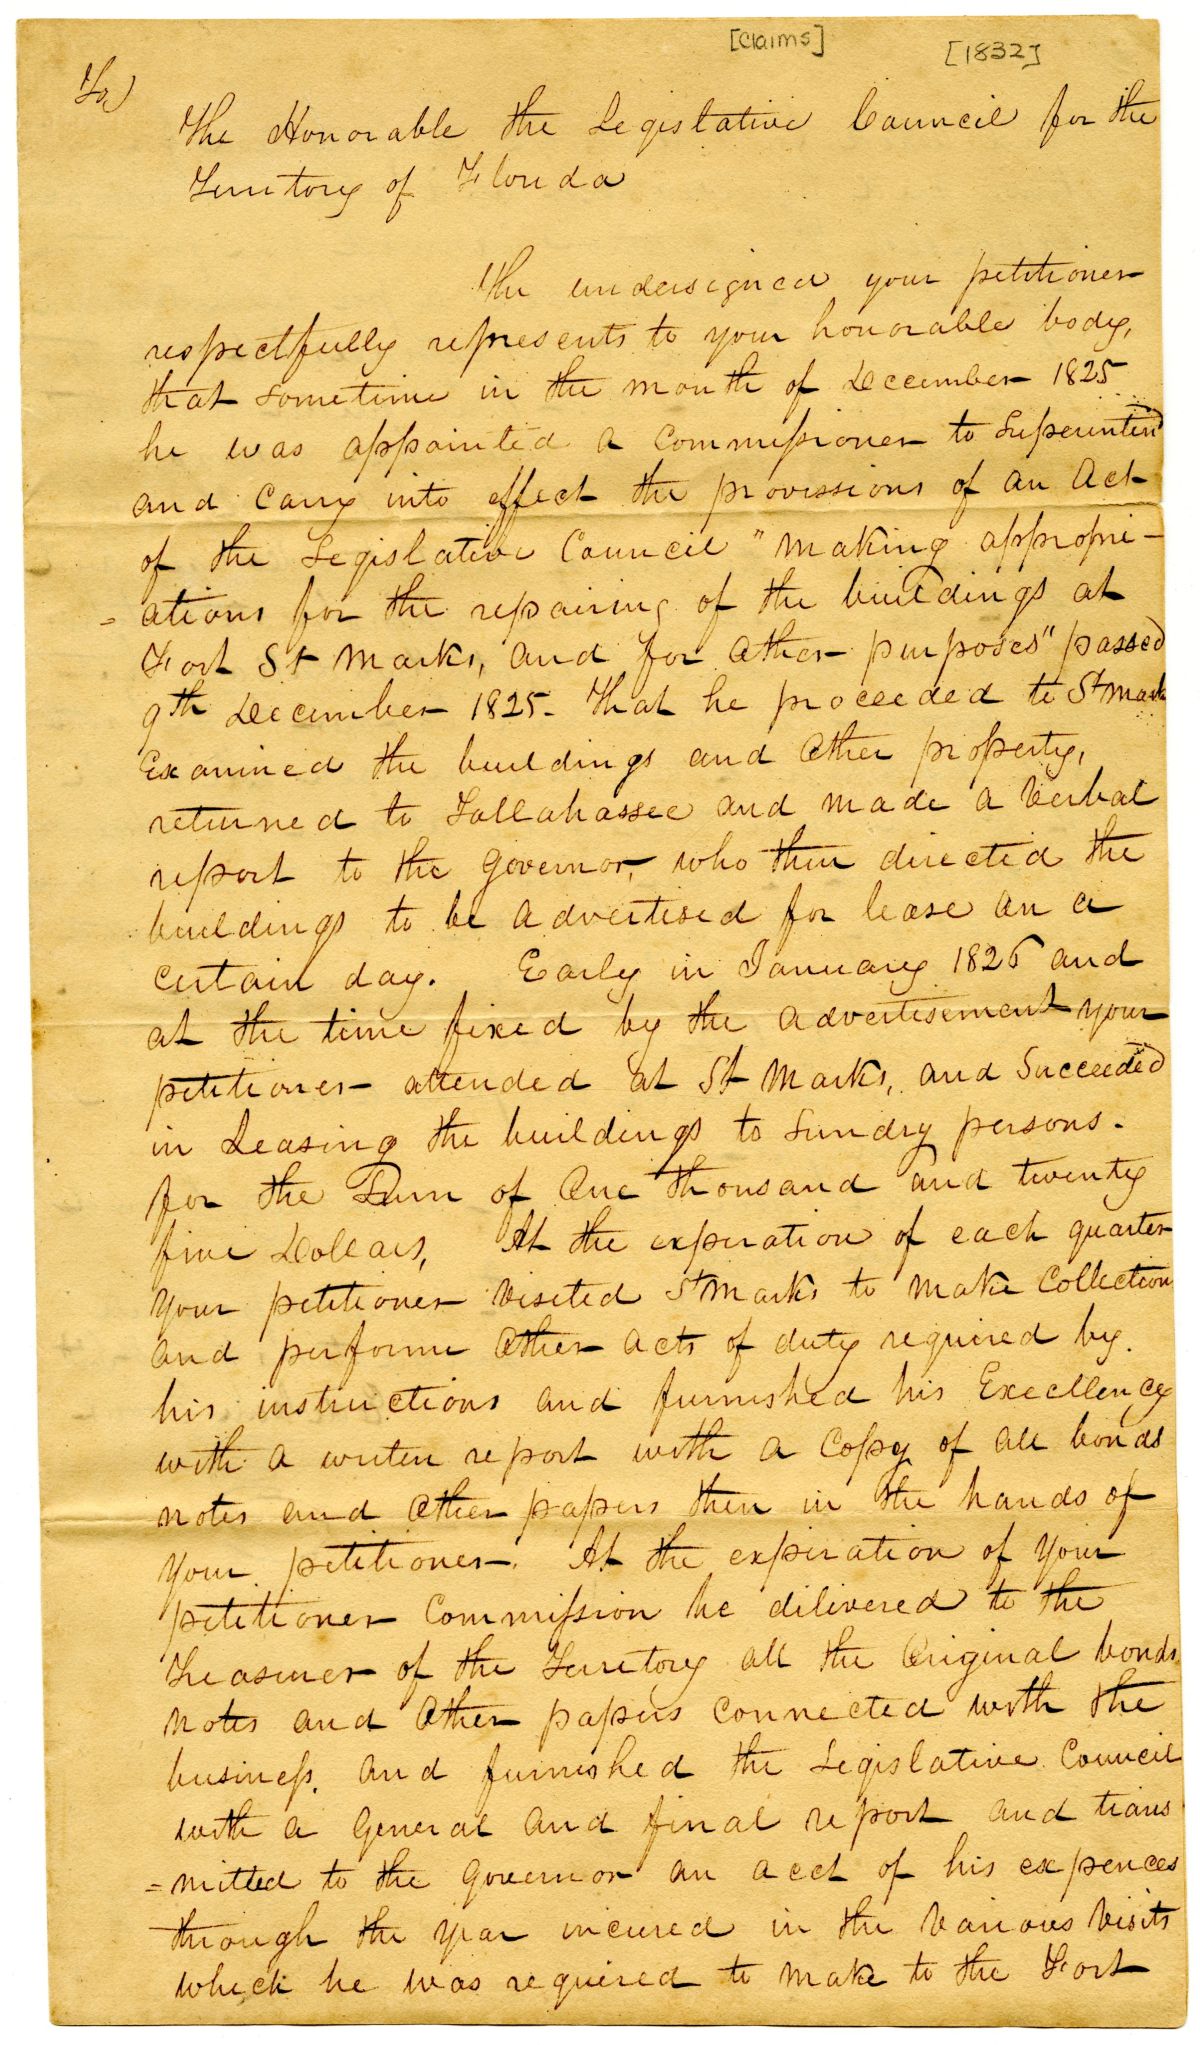 [Claims] [1832]
To
The Honorable the Legislative Council for the
Territory of Florida
The undersigned your petitioner
respectfully represents to your honorable body,
that sometime in the month of December 1825
he was appointed a Commissioner to Superintend
and Carry into effect the provissions of an Act
of the Legislative Council "Making appropri-
=ations for the repairing of the buildings at
Fort St Marks, and for Other purposes" passed
9th December 1825. That he proceeded to St Marks
Examined the buildings and Other property,
returned to Tallahassee and made a Verbal
report to the Governor, who then directed the
buildings to be advertised for lease on a
certain day. Early in January 1826 and
at the time fixed by the advertisement your
petitioner attended at St Marks, and Succeeded
in Leasing the buildings to Sundry persons.
for the Sum of One thousand and twenty
five Dollars, At the expiration of each quarter
your petitioner Visited St Marks to make Collection
and performe Other acts of duty required by
his instructions and furnished his Excellency
with a writen report with a Copy of all bonds
notes and Other papers then in the hands of
your petitioner. At the expiration of your
petitioner Commission he dilivered to the
Treasurer of the Territory all the Original bonds
notes and Other papers Connected with the
business, and furnished the Legislative Council
with a General and final report and trans
=mitted to the Governor an acct of his expences
through the year incured in the Various Visits
which he was required to make to the Fort